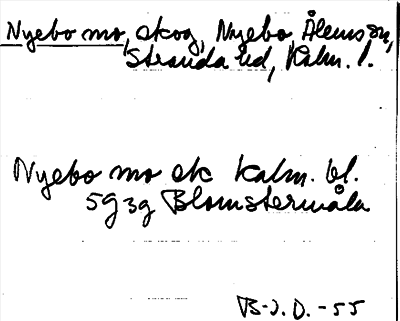 Nyebo mo, skog, Nyebo Ålemsån,
Stranda hd, Kalm. l.
Nyebo mo ek Kalm. bl.
5g3g Blomstermåla
B-J. D. -55